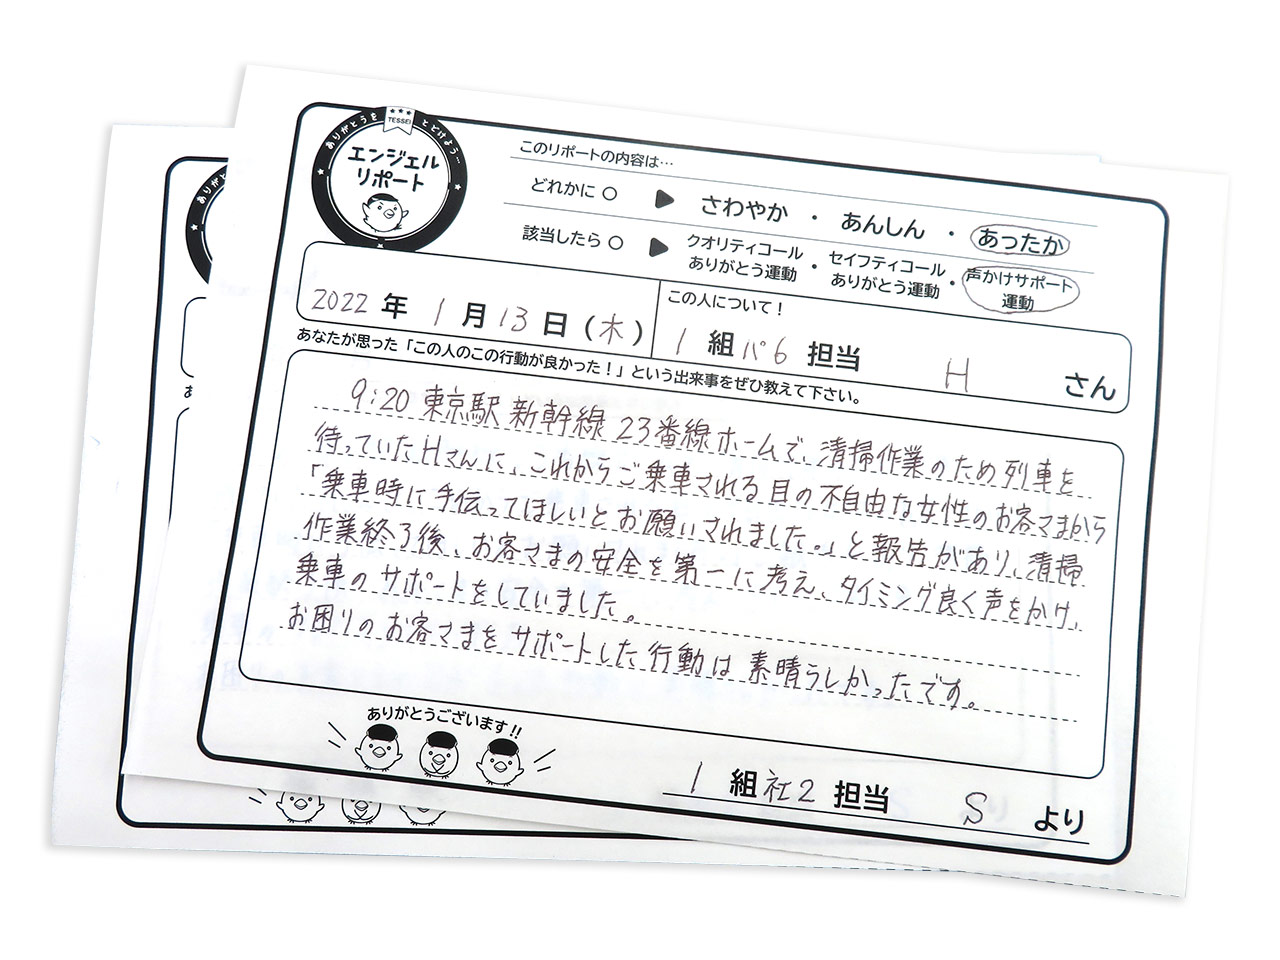 ありがとうを
とどけよう…
TESSEI
エンジェル
リポート
このリポートの内容は…
どれかに ○ ▶ さわやか ・ あんしん ・ あったか
該当したら ○ ▶ クオリティコール ありがとう運動 ・ セイフティコール ありがとう運動 ・ 声かけサポート 運動
2022 年 1 月 13 日 (木)
この人について!
1 組 パ6 担当 H さん
あなたが思った「この人のこの行動が良かった!」という出来事をぜひ教えて下さい。
9:20 東京駅 新幹線 23番線ホームで、清掃作業のため列車を
待っていたHさんに、これからご乗車される目の不自由な女性のお客さまから
「乗車時に手伝ってほしいとお願いされました。」と報告があり、清掃
作業終了後、お客さまの安全を第一に考え、タイミング良く声をかけ、
乗車のサポートをしていました。
お困りのお客さまをサポートした行動は素晴らしかったです。
ありがとうございます!!
1 組 社2 担当 S より
ありがと
あ